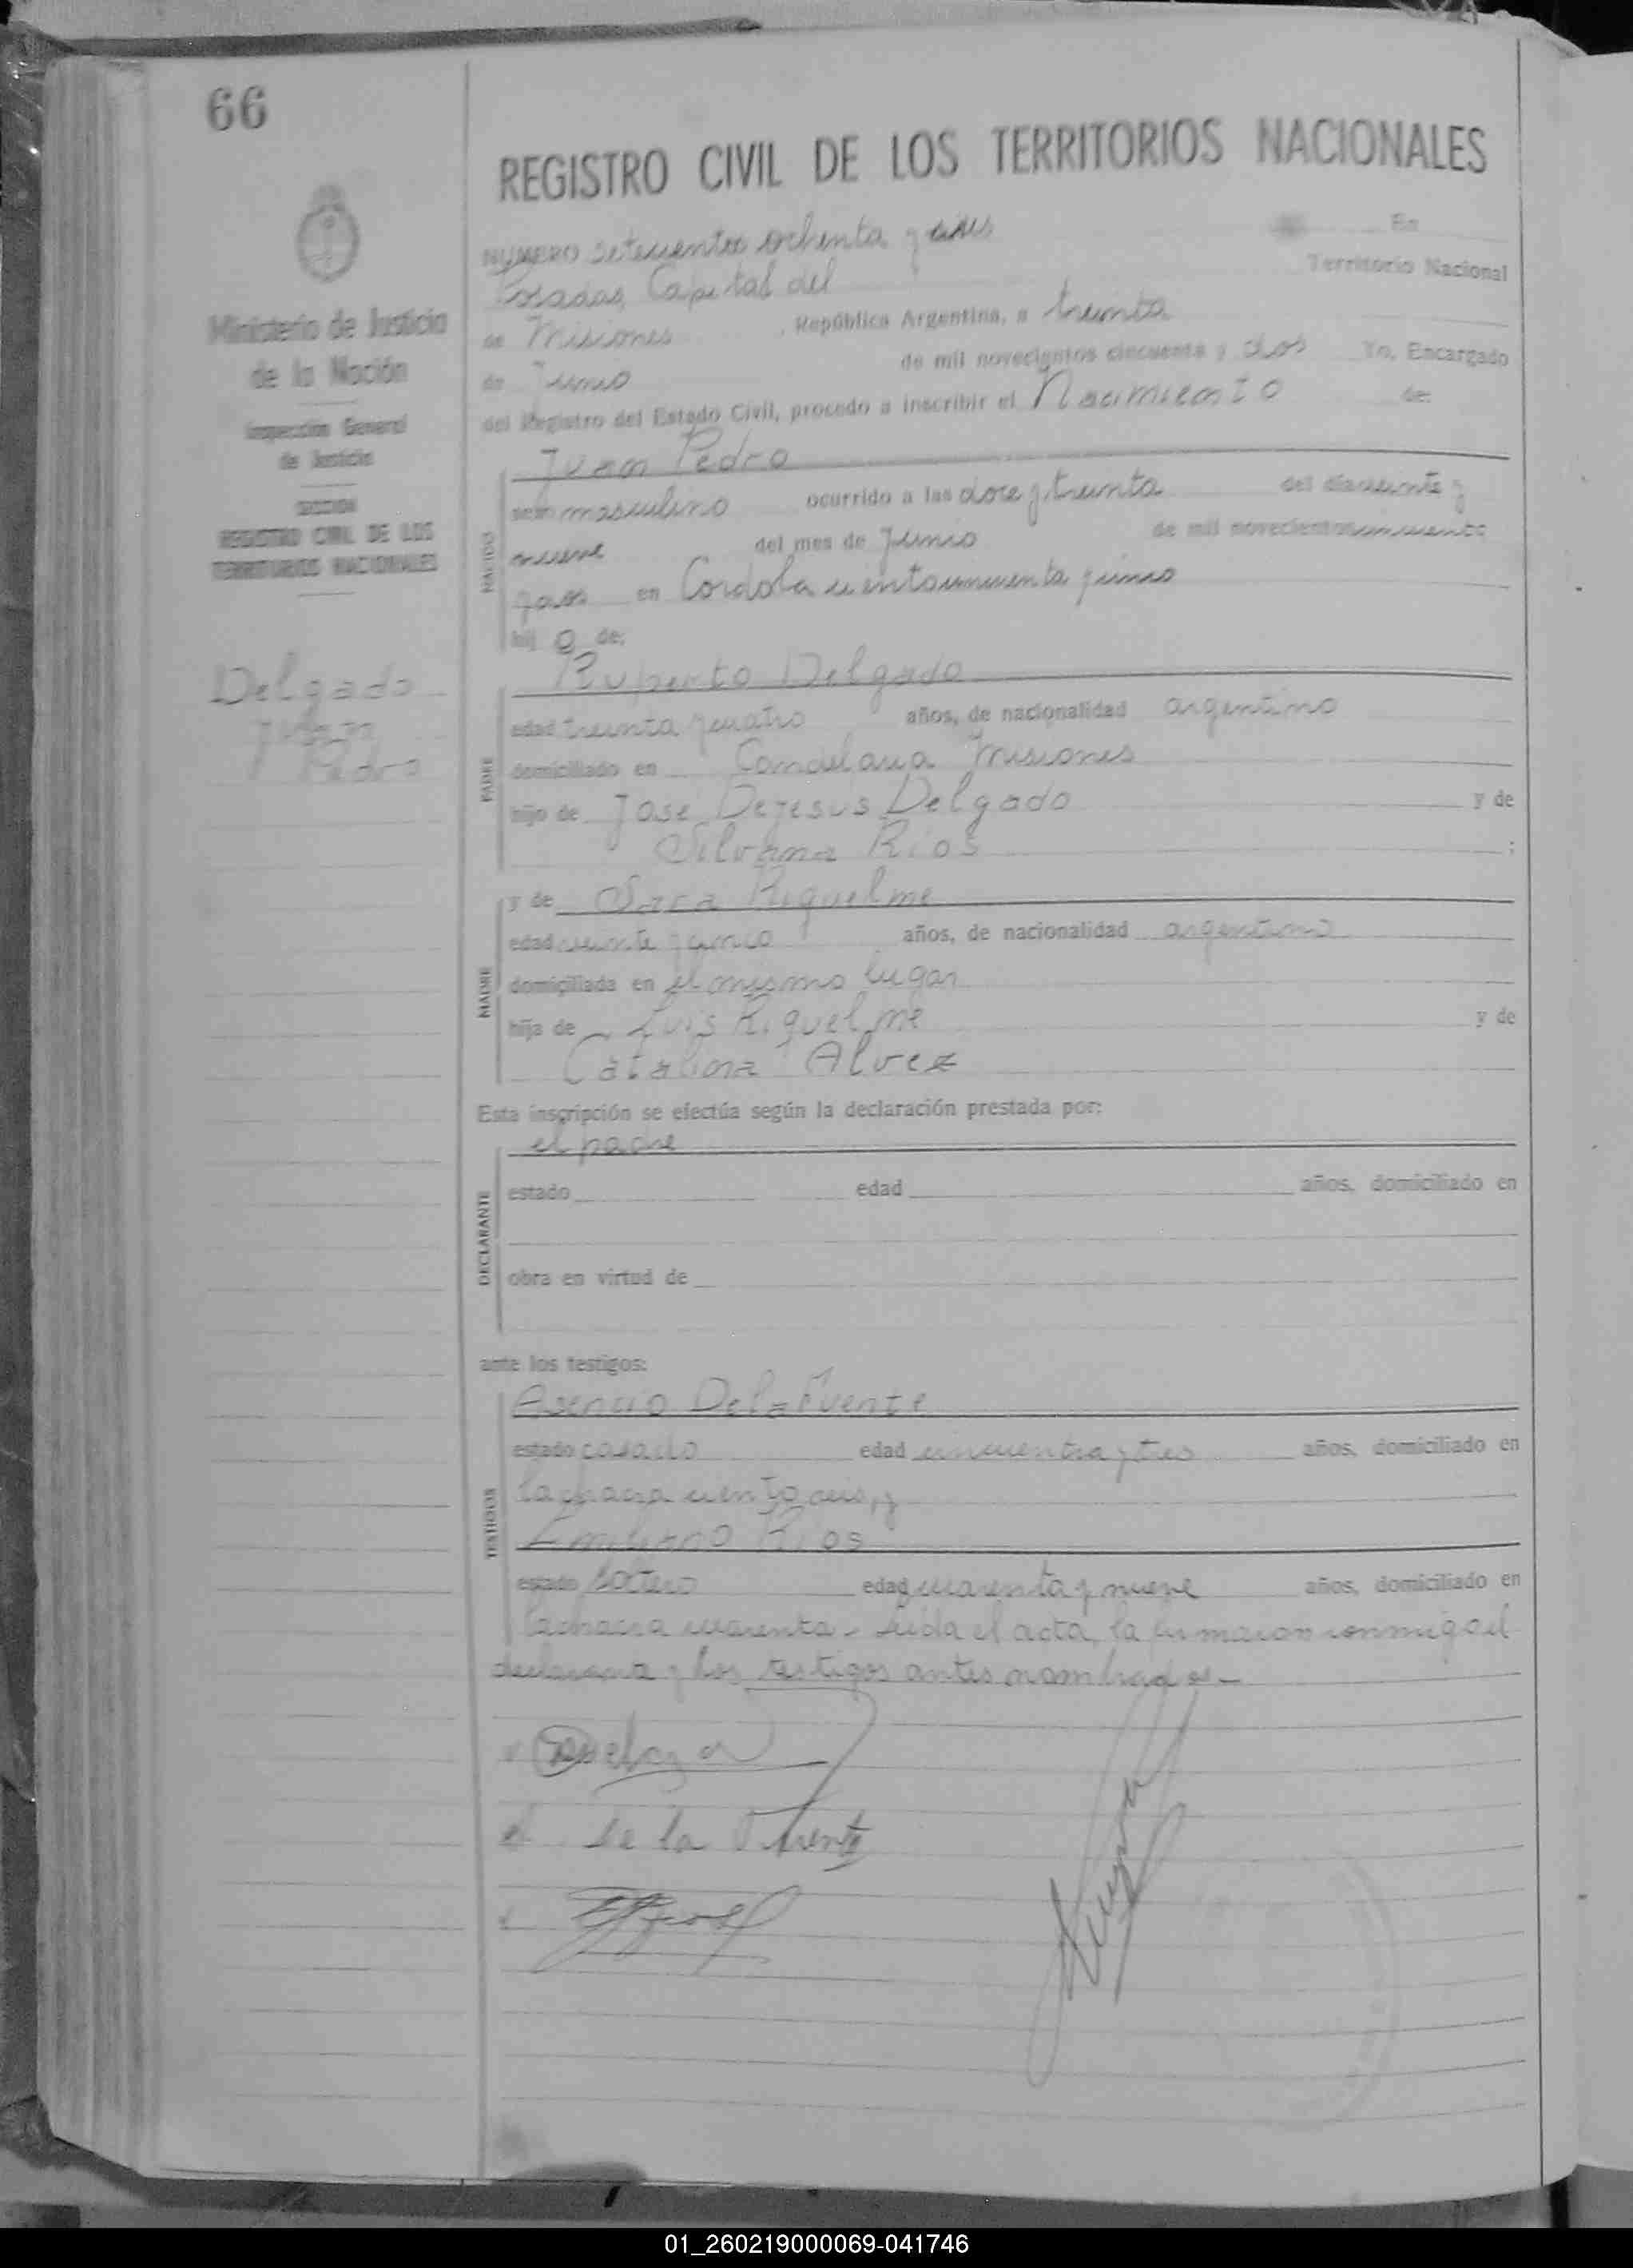 66
REGISTRO CIVIL DE LOS TERRITORIOS NACIONALES
Ministerio de Justicia
de la Nación
Inspección General
de Justicia
SECCION
REGISTRO CIVIL DE LOS
TERRITORIOS NACIONALES
Delgado
Juan
Pedro
NUMERO setecientos ochenta y En
Posadas, Capital del Territorio Nacional
de Misiones República Argentina, a treinta
de Junio de mil novecientos cincuenta y dos Yo, Encargado
del Registro del Estado Civil, procedo a inscribir el Nacimiento de:
NACIDO
Juan Pedro
sexo masculino ocurrido a las doce y treinta del dia veinte y
nueve del mes de Junio de mil novecientos cincuenta
y dos en Cordoba ciento cincuenta y cinco
hij o de:
PADRE
Ruperto Delgado
edad treinta y cuatro años, de nacionalidad argentino
domiciliado en Candelaria Misiones
hijo de José Dejesus Delgado y de
Silvana Rios ;
MADRE
y de Sara Riquelme
edad veinte y cinco años, de nacionalidad argentina
domiciliada en el mismo lugar
hija de Luis Riquelme y de
Catalina Alvez
Esta inscripción se efectúa según la declaración prestada por:
DECLARANTE
el padre
estado edad años, domiciliado en
obra en virtud de
ante los testigos:
TESTIGOS
Asencio DelaFuente
estado casado edad cincuenta y tres años, domiciliado en
la chacra ciento seis, y
Emiliano Rios
estado soltero edad cuarenta y nueve años, domiciliado en
la chacra cuarenta - Leida el acta, la firmaron conmigo el
declarante y los testigos antes nombrados -
De la Fuente
01_260219000069-041746